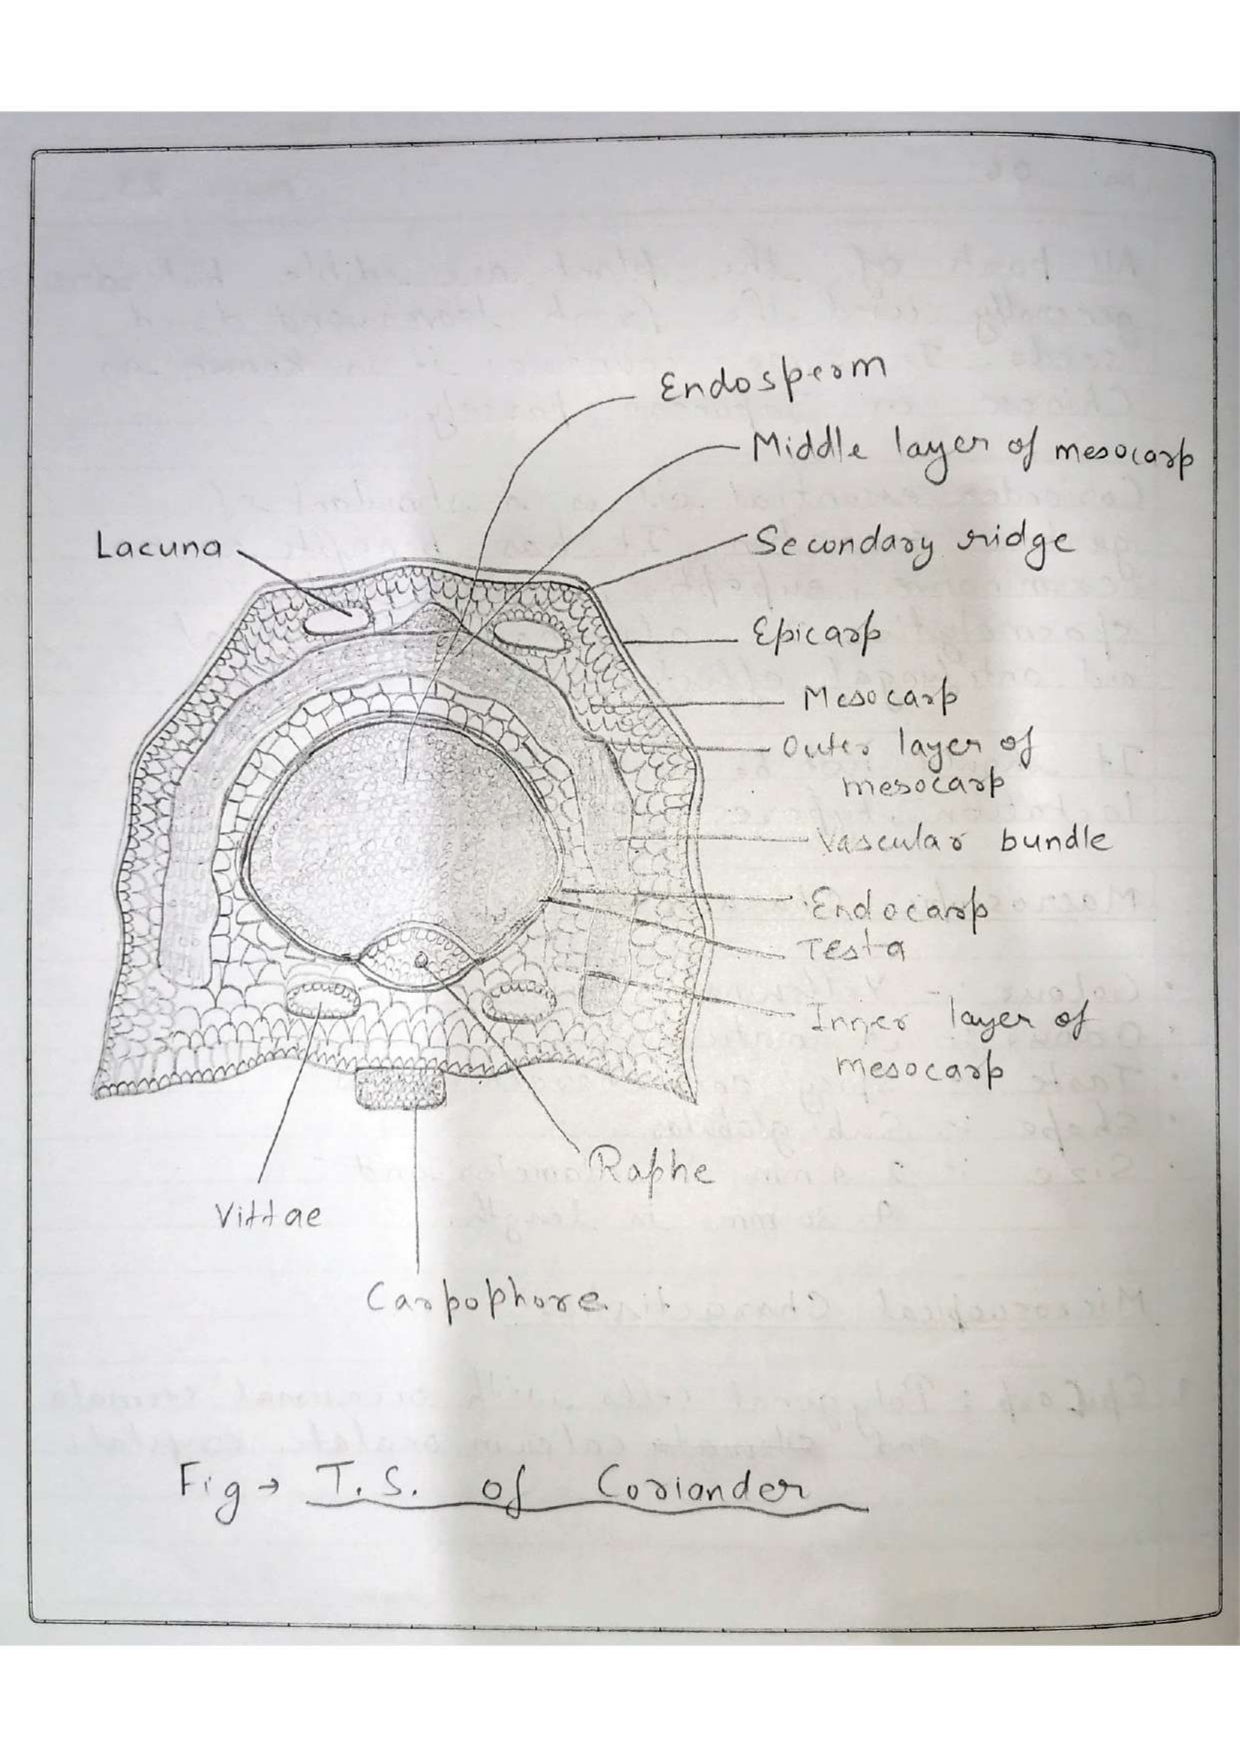 Endosperm
Middle layer of mesocarp
Lacuna
Secondary ridge
Epicarp
Mesocarp
Outer layer of
mesocarp
Vascular bundle
Endocarp
Testa
Inner layer of
mesocarp
Raphe
Vittae
Carpophore.
Fig → T.S. of Coriander